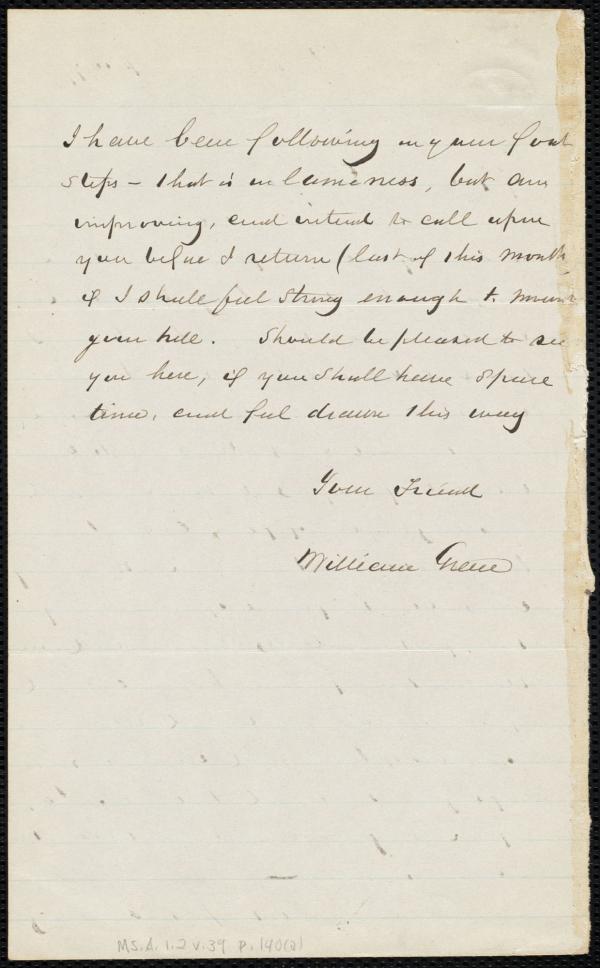 I have been following in your foot
steps – that is in lameness, but am
improving, and intend to call upon
you before I return (last of this month
if I shall feel strong enough to mount
your hill. Should be pleased to see
you here, if you shall have spare
time, and feel drawn this way
Your Friend
William Greene
MS.A.1.2 v.39 p.140(a)